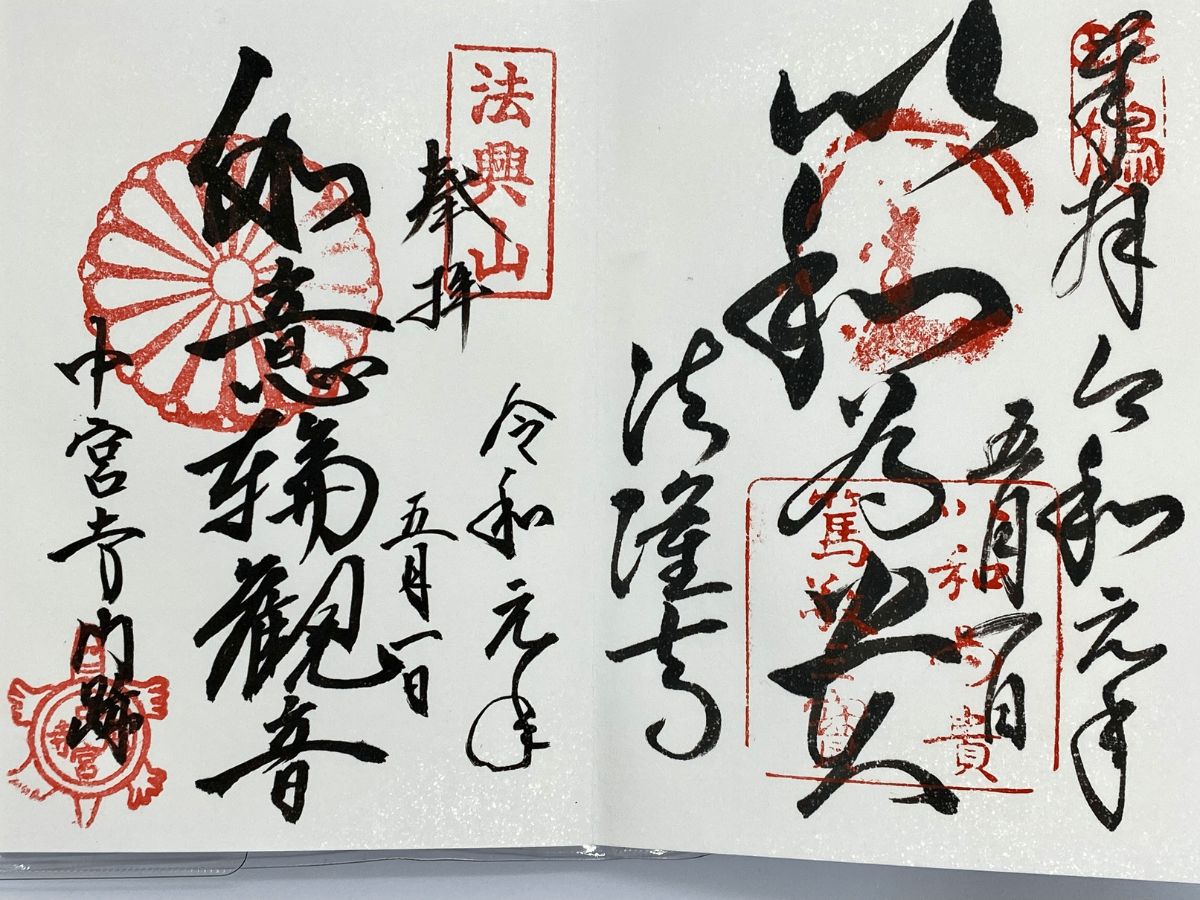 奉拝
令和元年
五月一日
以和為貴
法隆寺
斑鳩
以和為貴
篤敬三寶
法興山
奉拝
令和元年
五月一日
如意輪観音
中宮寺門跡
中宮寺